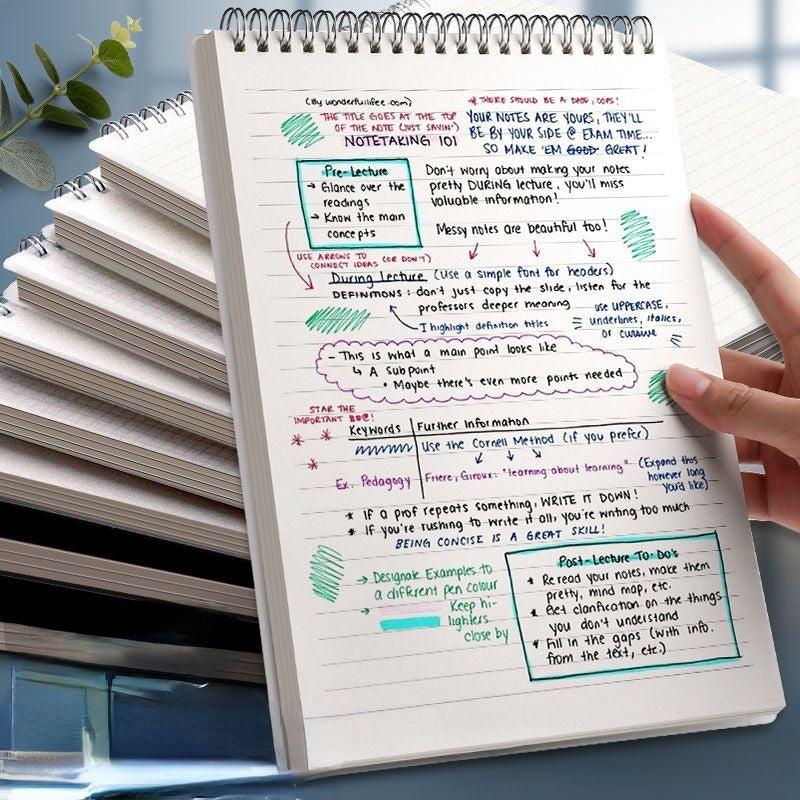 (By wonderfullifee.com)
* THERE SHOULD BE A DATE, OOPS!
THE TITLE GOES AT THE TOP
OF THE NOTE (JUST SAYIN')
NOTETAKING 101
YOUR NOTES ARE YOURS, THEY'LL
BE BY YOUR SIDE @ EXAM TIME...
SO MAKE 'EM GOOD GREAT!
Pre-Lecture
→ Glance over the
readings
→ Know the main
concepts
Don't worry about making your notes
pretty DURING lecture, you'll miss
valuable information!
Messy notes are beautiful too!
USE ARROWS TO
CONNECT IDEAS (OR DON'T)
During Lecture (Use a simple font for headers)
DEFINITIONS: don't just copy the slide, listen for the
professors deeper meaning
I highlight definition titles
use UPPERCASE,
underlines, italics,
or cursive
- This is what a main point looks like
↳ A Subpoint
• Maybe there's even more points needed
STAR THE
IMPORTANT
Keywords
Further Information
Use the Cornell Method (if you prefer)
Ex. Pedagogy
Friere, Giroux: "learning about learning"
(Expand this
however long
you'd like)
* If a prof repeats something, WRITE IT DOWN!
* If you're rushing to write it all, you're writing too much
BEING CONCISE IS A GREAT SKILL!
→ Designate Examples to
a different pen colour
→ Keep hi-
lighters
close by
Post-Lecture To-Do's
* Re read your notes, make them
pretty, mind map, etc.
* Get clarification on the things
you don't understand
* Fill in the gaps (with info.
from the text, etc.)